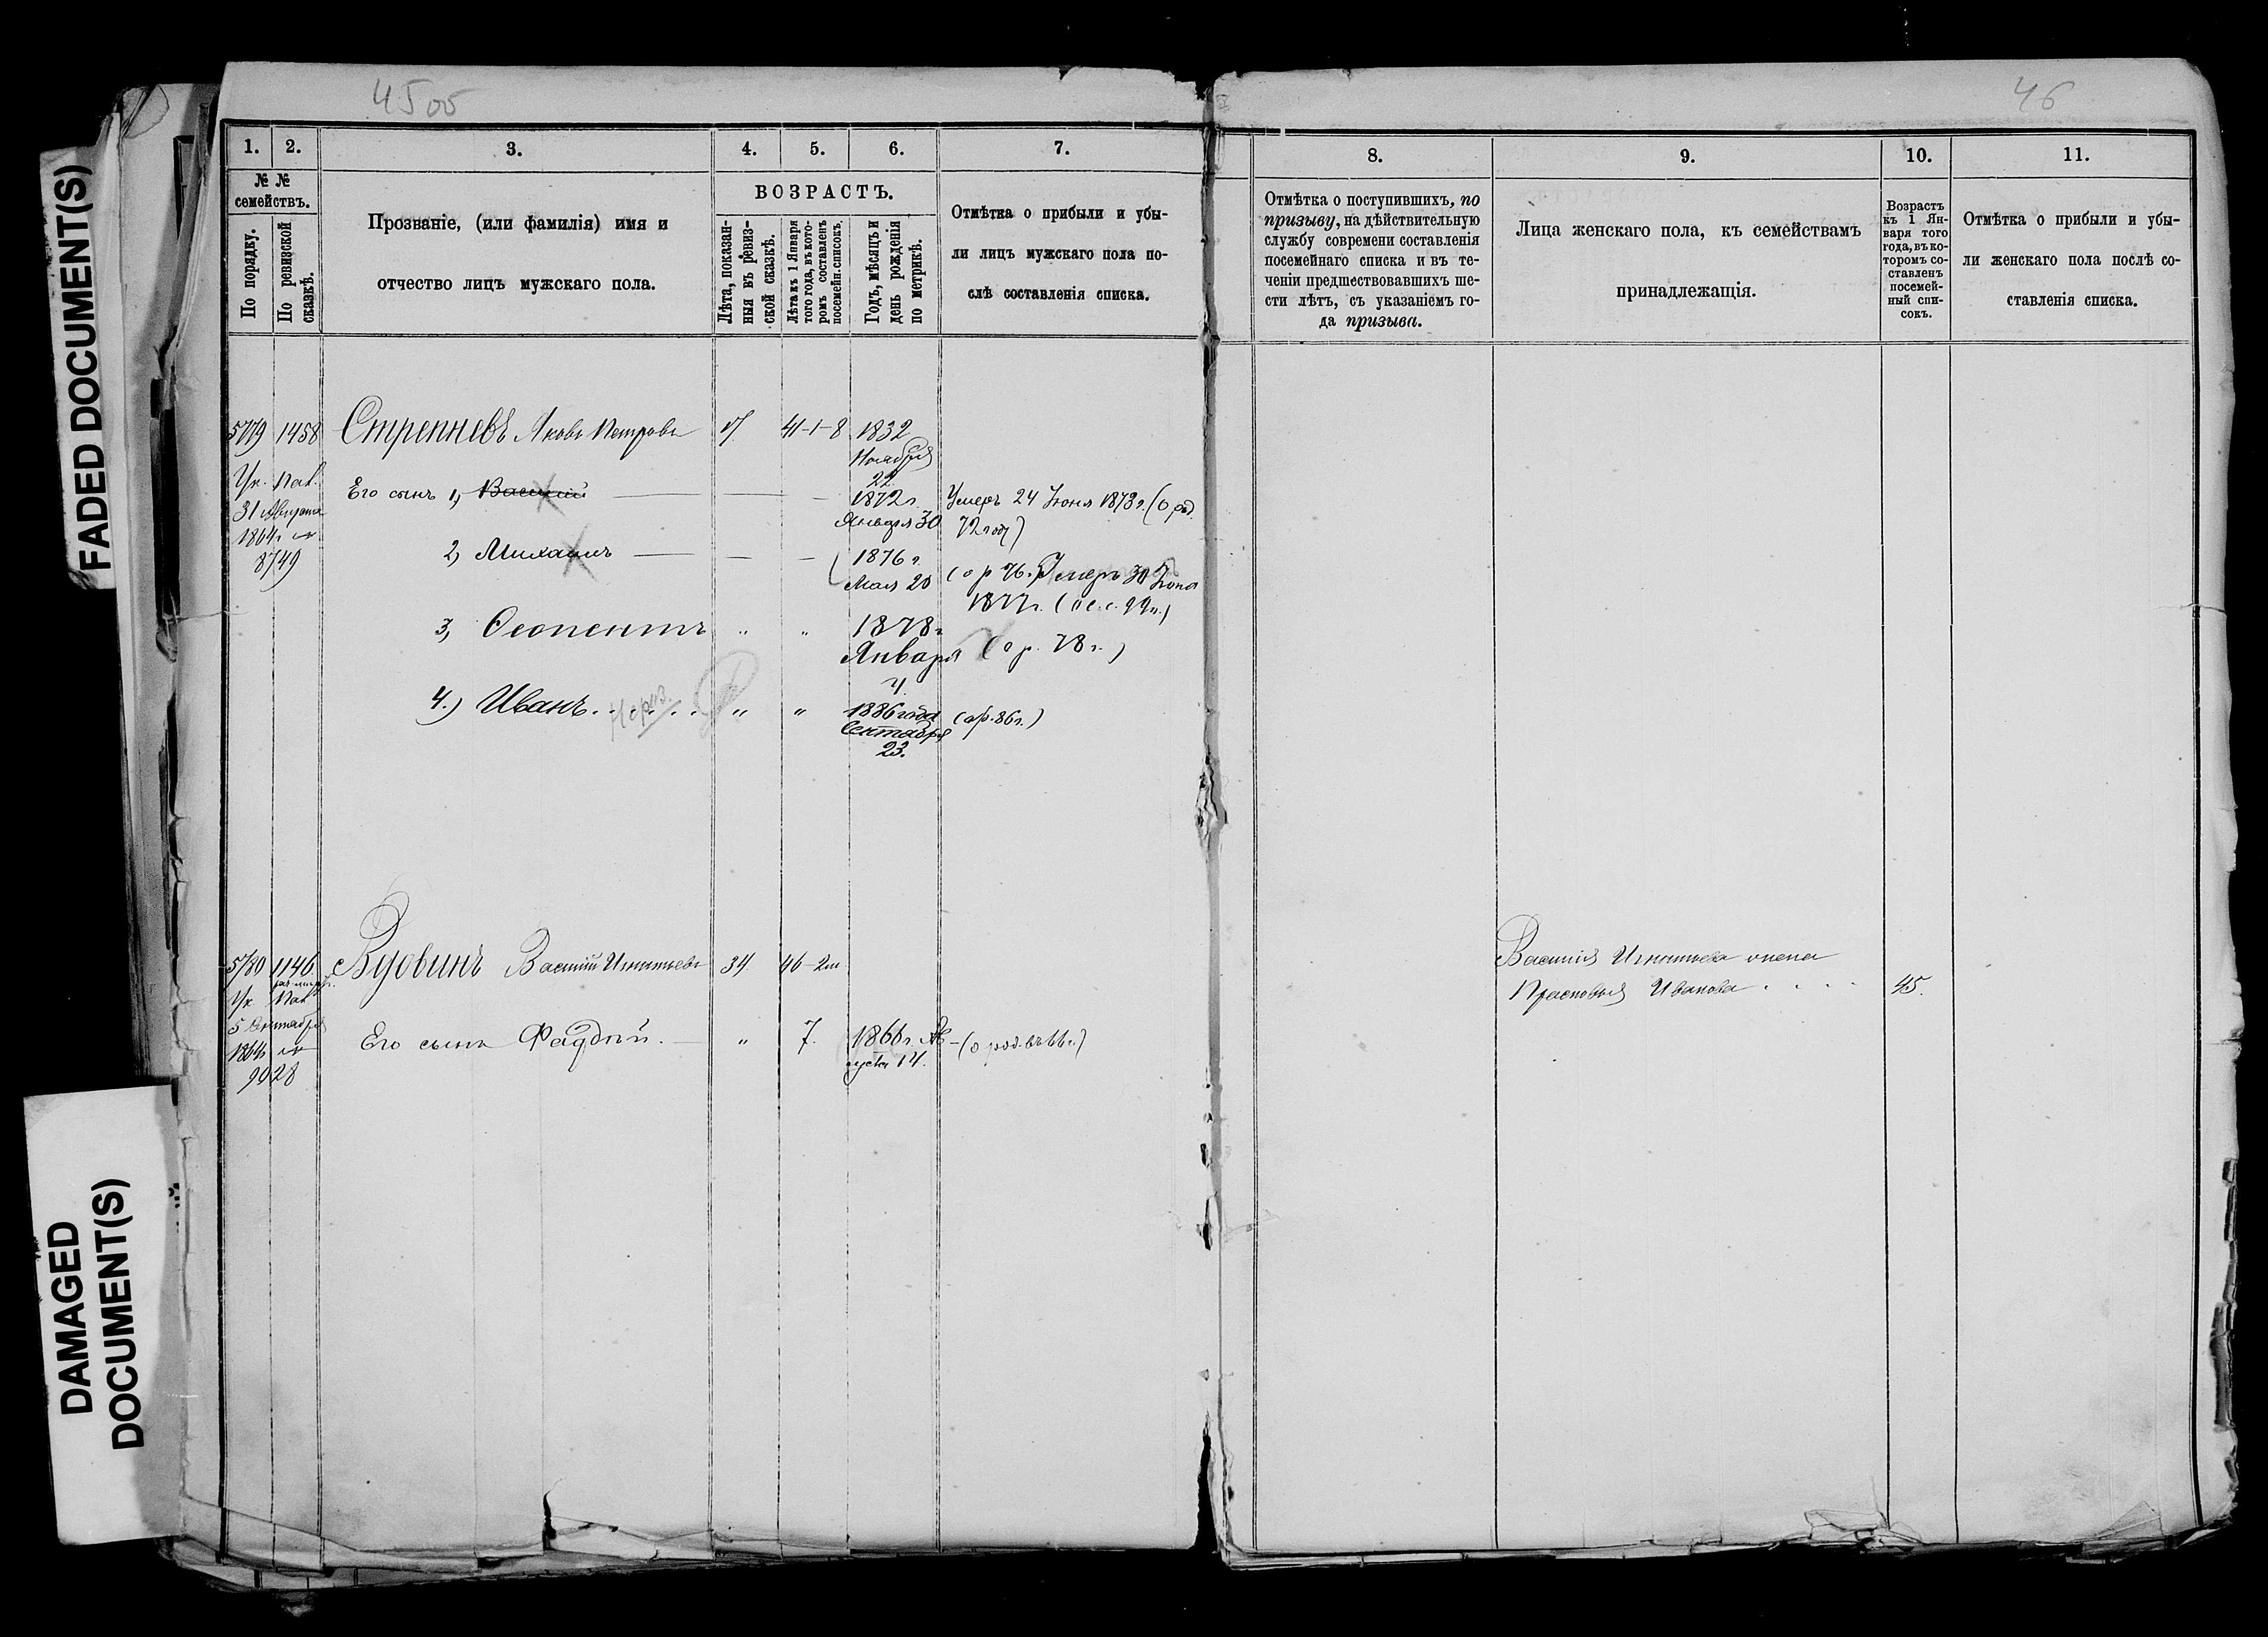 FADED DOCUMENT(S)
DAMAGED
DOCUMENT(S)
45об
46
1.
2.
3.
4.
5.
6.
7.
8.
9.
10.
11.
№ №
семействъ.
По порядку.
По ревизской
сказкѣ.
Прозваніе, (или фамилія) имя и
отчество лицъ мужскаго пола.
ВОЗРАСТЪ.
Лѣта, показан-
ныя въ ревиз-
ской сказкѣ.
Лѣта къ 1 Января
того года, въ кото-
ромъ составленъ
посемейн. списокъ.
Годъ, мѣсяцъ и
день рожденія
по метрикѣ.
Отмѣтка о прибыли и убы-
ли лицъ мужскаго пола по-
слѣ составленія списка.
Отмѣтка о поступившихъ, по
призыву, на дѣйствительную
службу современи составленія
посемейнаго списка и въ те-
ченіи предшествовавшихъ ше-
сти лѣтъ, съ указаніемъ го-
да призыва.
Лица женскаго пола, къ семействамъ
принадлежащія.
Возрастъ
къ 1 Ян-
варя того
года, въ ко-
торомъ со-
ставленъ
посемей-
ный спи-
сокъ.
Отмѣтка о прибыли и убы-
ли женскаго пола послѣ со-
ставленія списка.
5779 1458 Яковъ Петровъ 17. 41-1-8 1832
Ноября
22.
Ук. Пал.
31 Августа
1864 г.
8749
Его сынъ 1, Василій 1872 г.
Января 30
Умеръ 24 Іюня 1873 г. (о род.
72 году)
2, Михаилъ 1876 г.
Мая 20
(о р 76 г.) Умеръ 30 Іюня
1877 г.
3, Ѳеопентъ " " 1878 г.
Января
4.
(о р. 78 г.)
4.) Иванъ " " 1886 года
Сентября
23.
(о р. 86 г.)
5780 1146 Вдовинъ Василій Игнатьевъ 34. 46-2
Ук. Пал.
5 Сентября
1864
9028
Его сынъ Фадѣй. " 7. 1866 г. Ав-
густа 14.
(о род. въ 66 г.)
Василія Игнатьева жена
Прасковья Иванова 45.